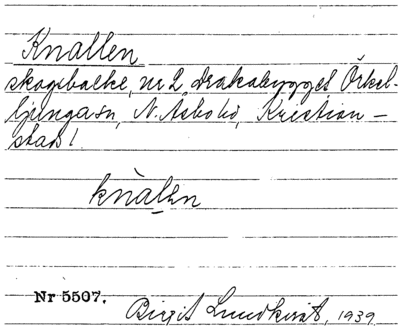 Knallen
skogsbacke, nr 2 Drakabygget Örkel-
ljunga sn, N. Åsbo hd, Kristian-
stads l.
knalen
Nr 5507.
Birgit Lundkvist, 1939